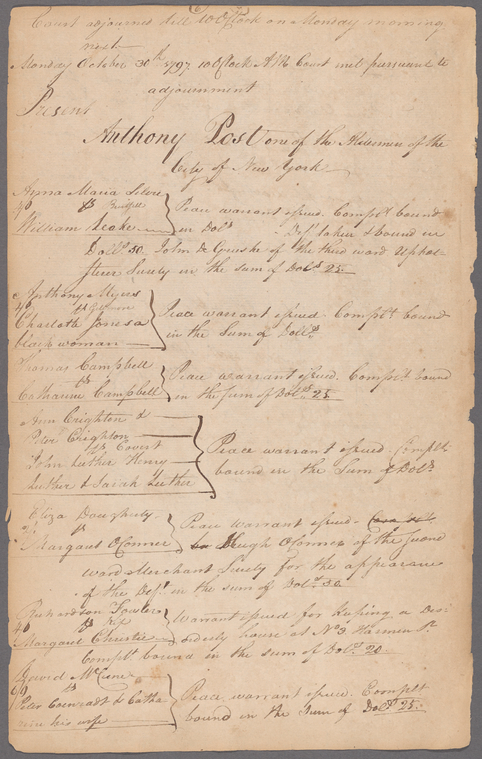 Court adjourned till 10 O'Clock on Monday morning
next
Monday October 30th 1797. 10 O'Clock A M Court met pursuant to
adjournment
Present
Anthony Post one of the Aldermen of the
City of New York
Anna Maria
46 vs
William Leake
Peace warrant issued. Complt bound
in Dolls Deft taken & bound in
Dolls 50. John of the third ward Uphol-
sterer Surety in the sum of Dolls 25.
Anthony Myres
46 vs
Charlotte Jones a
black woman
Peace warrant issued. Complt bound
in the Sum of Dolls
Thomas Campbell
vs
Catharine Campbell
Peace warrant issued. Complt bound
in the Sum of Dolls 25
Ann Crighton &
Peter Crighton
vs Covert
John Luther Henry
Luther & Sarah Luther
Peace warrant issued. Complt
bound in the Sum of Dolls
Eliza Daugherty
vs
Margaret OConner
Peace warrant issued.
Hugh OConner of the second
ward Merchant Surety for the appearance
of the Deft in the sum of Dols 50
Richardson Fowler
46 vs
Margaret Christie
Warrant issued for keeping a Dis-
orderly house at No 3 Harmen St.
Complt bound in the sum of Dols 20
McCune
vs
Peter Coenradt & Catha
rine his wife
Peace warrant issue. Complt
bound in the Sum of Dols 25.